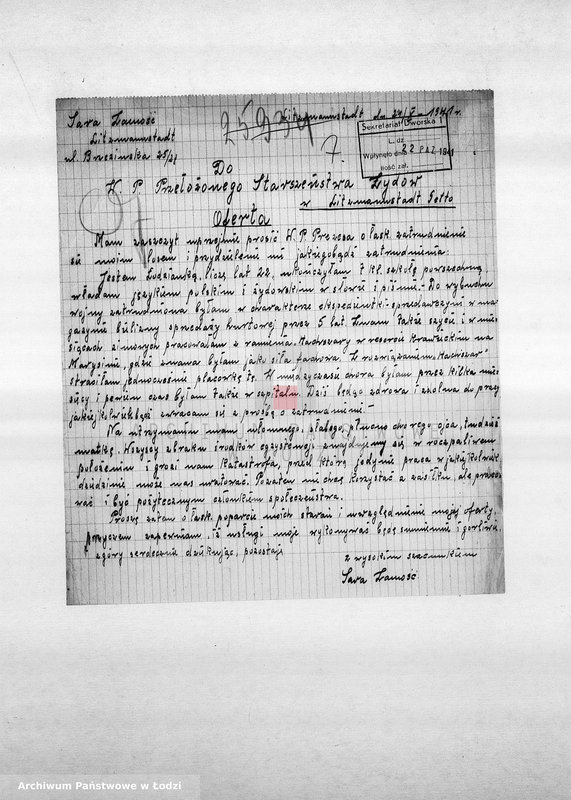 Sara Zamość
Litzmannstadt
ul. Brzezinska 25/21
25934
Litzmannstadt dn 21/X - 1941 r.
Sekretariat Dworska 1
L. dz.
Wpłynęło dnia 22 PAZ. 1941
ilość zał.
7
Do
W. P. Przełożonego Starszeństwa Żydów
w Litzmannstadt Getto
Oferta
Mam zaszczyt uprzejmie prosić W. P. Prezesa o łask. zatrudnienie
się moim losem i przydzielenie mi jakiegobądź zatrudnienia:
Jestem Łodzianką, liczę lat 22, ukończyłam 7 kl. szkołę powszechną,
władam językiem polskim i żydowskim w słowie i piśmie. - Do wybuchu
wojny zatrudniona byłam w charakterze ekspedientki - sprzedawczyni w ma-
gazynie bielizny sprzedaży hurtowej przez 5 lat. Znam także szycie i w mie-
siącach zimowych pracowałam z ramienia "Hachszary" w resorcie Krawieckim na
Marysinie, gdzie znana byłam jako siła fachowa. Z rozwiązaniem "Hachszar"
straciłam jednocześnie placówkę tę. W międzyczasie chora byłam przez kilka mie-
sięcy i pewien czas byłam także w szpitalu. Dziś będąc zdrowa i zdolna do pracy
jakiejkolwiekbądź zwracam się z prośbą o zatrudnienie. -
Na utrzymaniu mam ułomnego, słabego, płucno chorego ojca, tudzież
matkę. Wszyscy z braku środków egzystencji znajdujemy się w rozpaczliwem
położeniu i grozi nam katastrofa, przed którą jedynie praca w jakiejkolwiek
dziedzinie może nas uratować. Pozatem nie chcę korzystać z zasiłku, ale praco-
wać i być pożytecznym członkiem społeczeństwa.
Proszę zatem o łask. poparcie moich starań i uwzględnienie mojej oferty,
przyczem zapewniam, iż usługi moje wykonywać będę sumiennie i gorliwie
zgóry serdecznie dziękując, pozostaję
z wysokim szacunkiem
Sara Zamość
Archiwum Państwowe w Łodzi